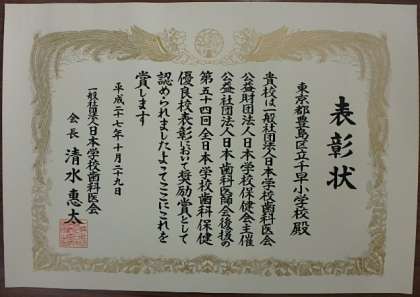 表彰状
東京都豊島区立千早小学校 殿
貴校は一般社団法人日本学校歯科医会
公益財団法人日本学校保健会主催
公益社団法人日本歯科医師会後援の
第五十四回全日本学校歯科保健
優良校表彰において奨励賞として
認められましたよってここにこれを
賞します
平成二十七年十月二十九日
一般社団法人日本学校歯科医会
会長 清水惠太